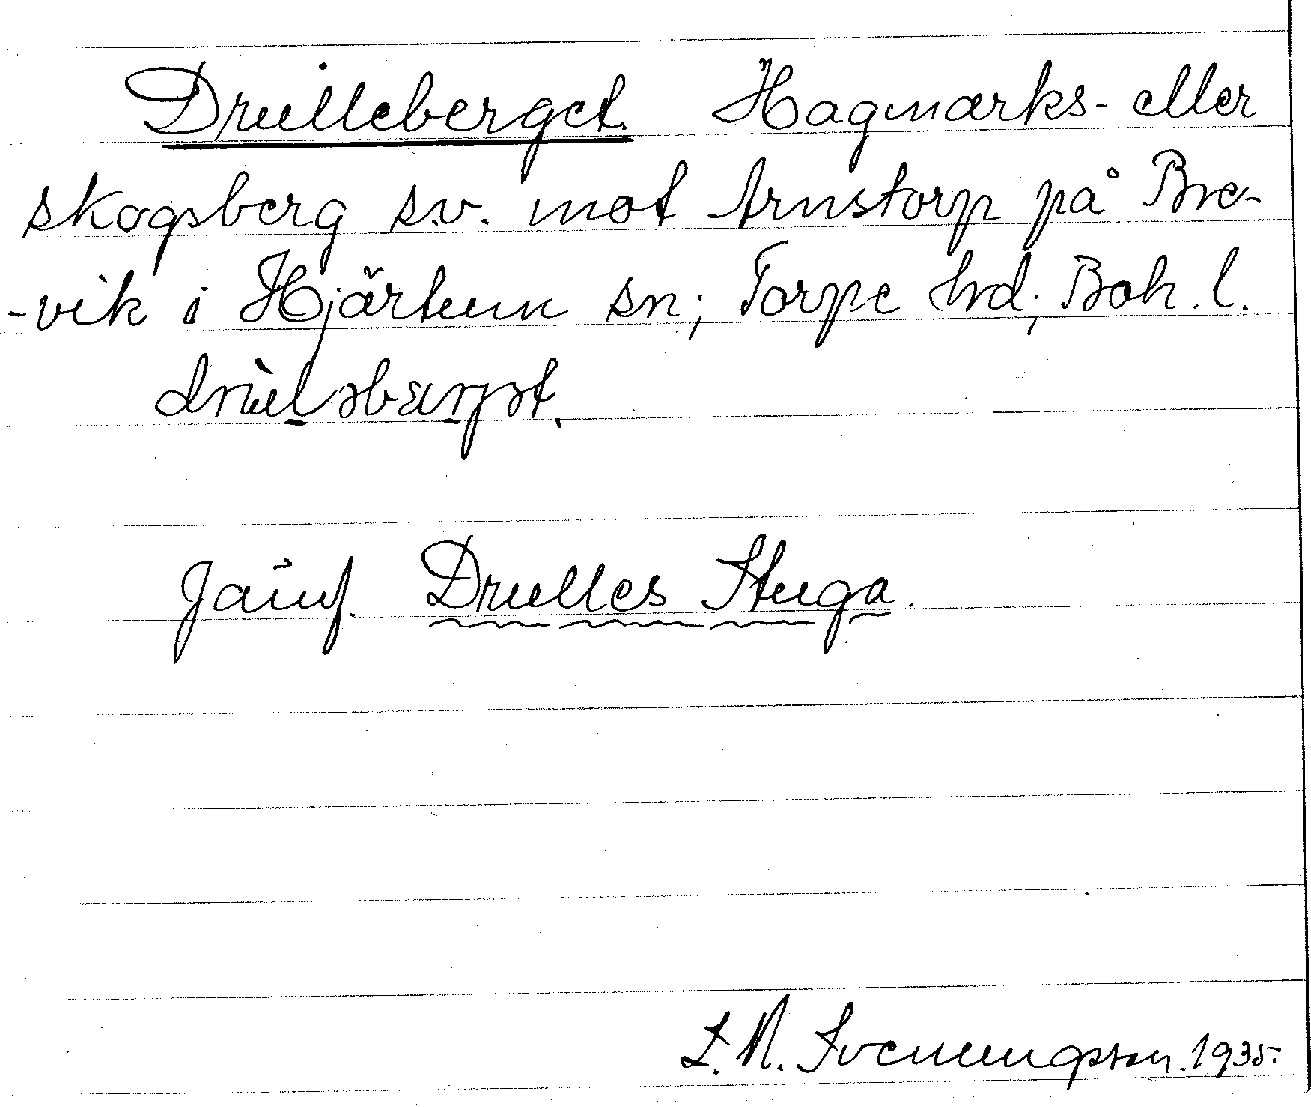 Drulleberget. Hagmarks- eller
skogsberg sv. mot Arnstorp på Bre-
-vik i Hjärtum sn; Torpe hd; Boh. l.
drùlsbærjət.
Jämf. Drulles Stuga.
L. N. Svenungsson. 1935.